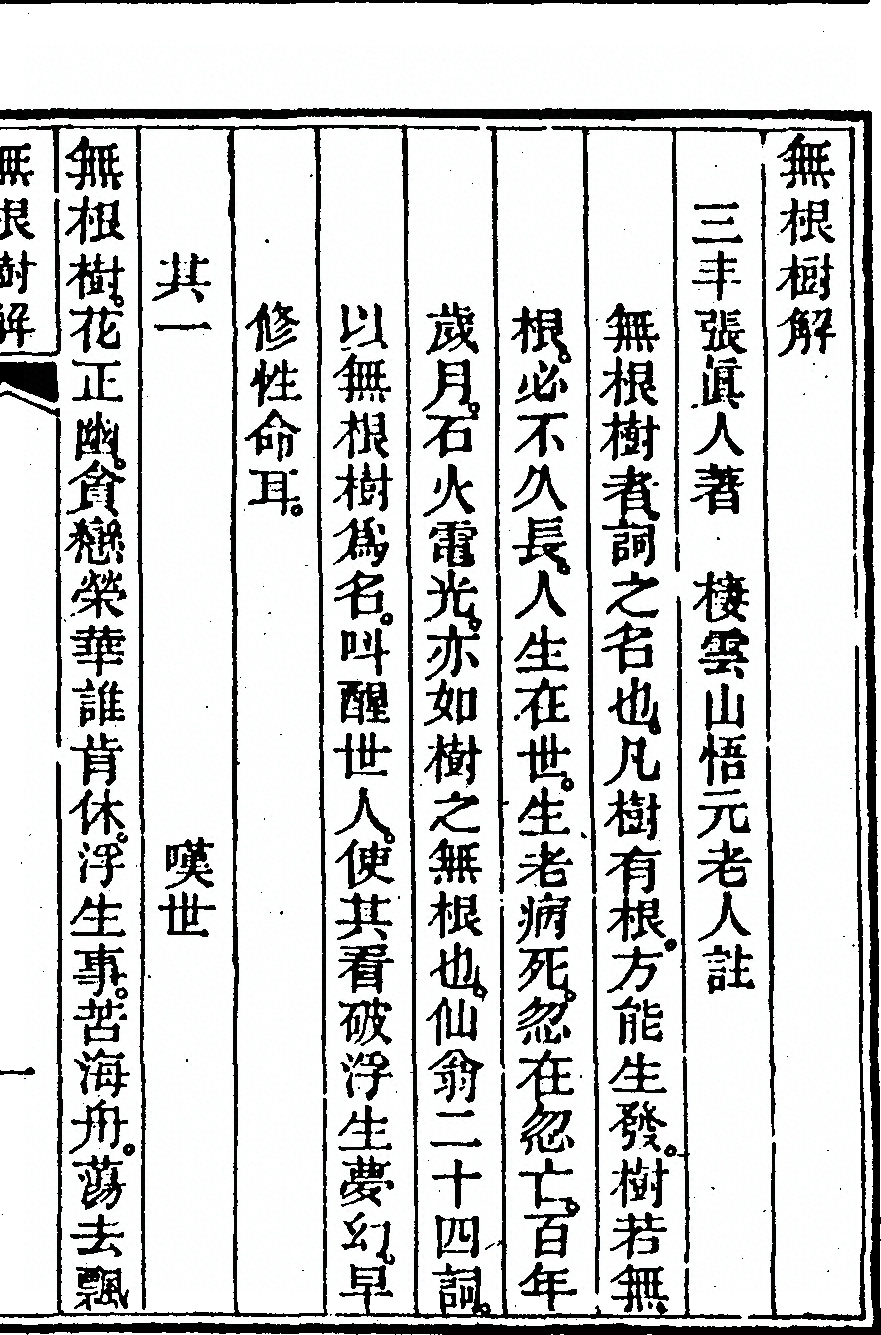 無根樹解
三丰張眞人著　棲雲山悟元老人註
無根樹者。詞之名也。凡樹有根。方能生發。樹若無
根。必不久長。人生在世。生老病死。忽在忽亡。百年
歲月。石火電光。亦如樹之無根也。仙翁二十四詞。
以無根樹爲名。叫醒世人。使其看破浮生夢幻。早
修性命耳。
其一　嘆世
無根樹。花正幽。貪戀榮華誰肯休。浮生事。苦海舟。蕩去飄
無根樹解　一